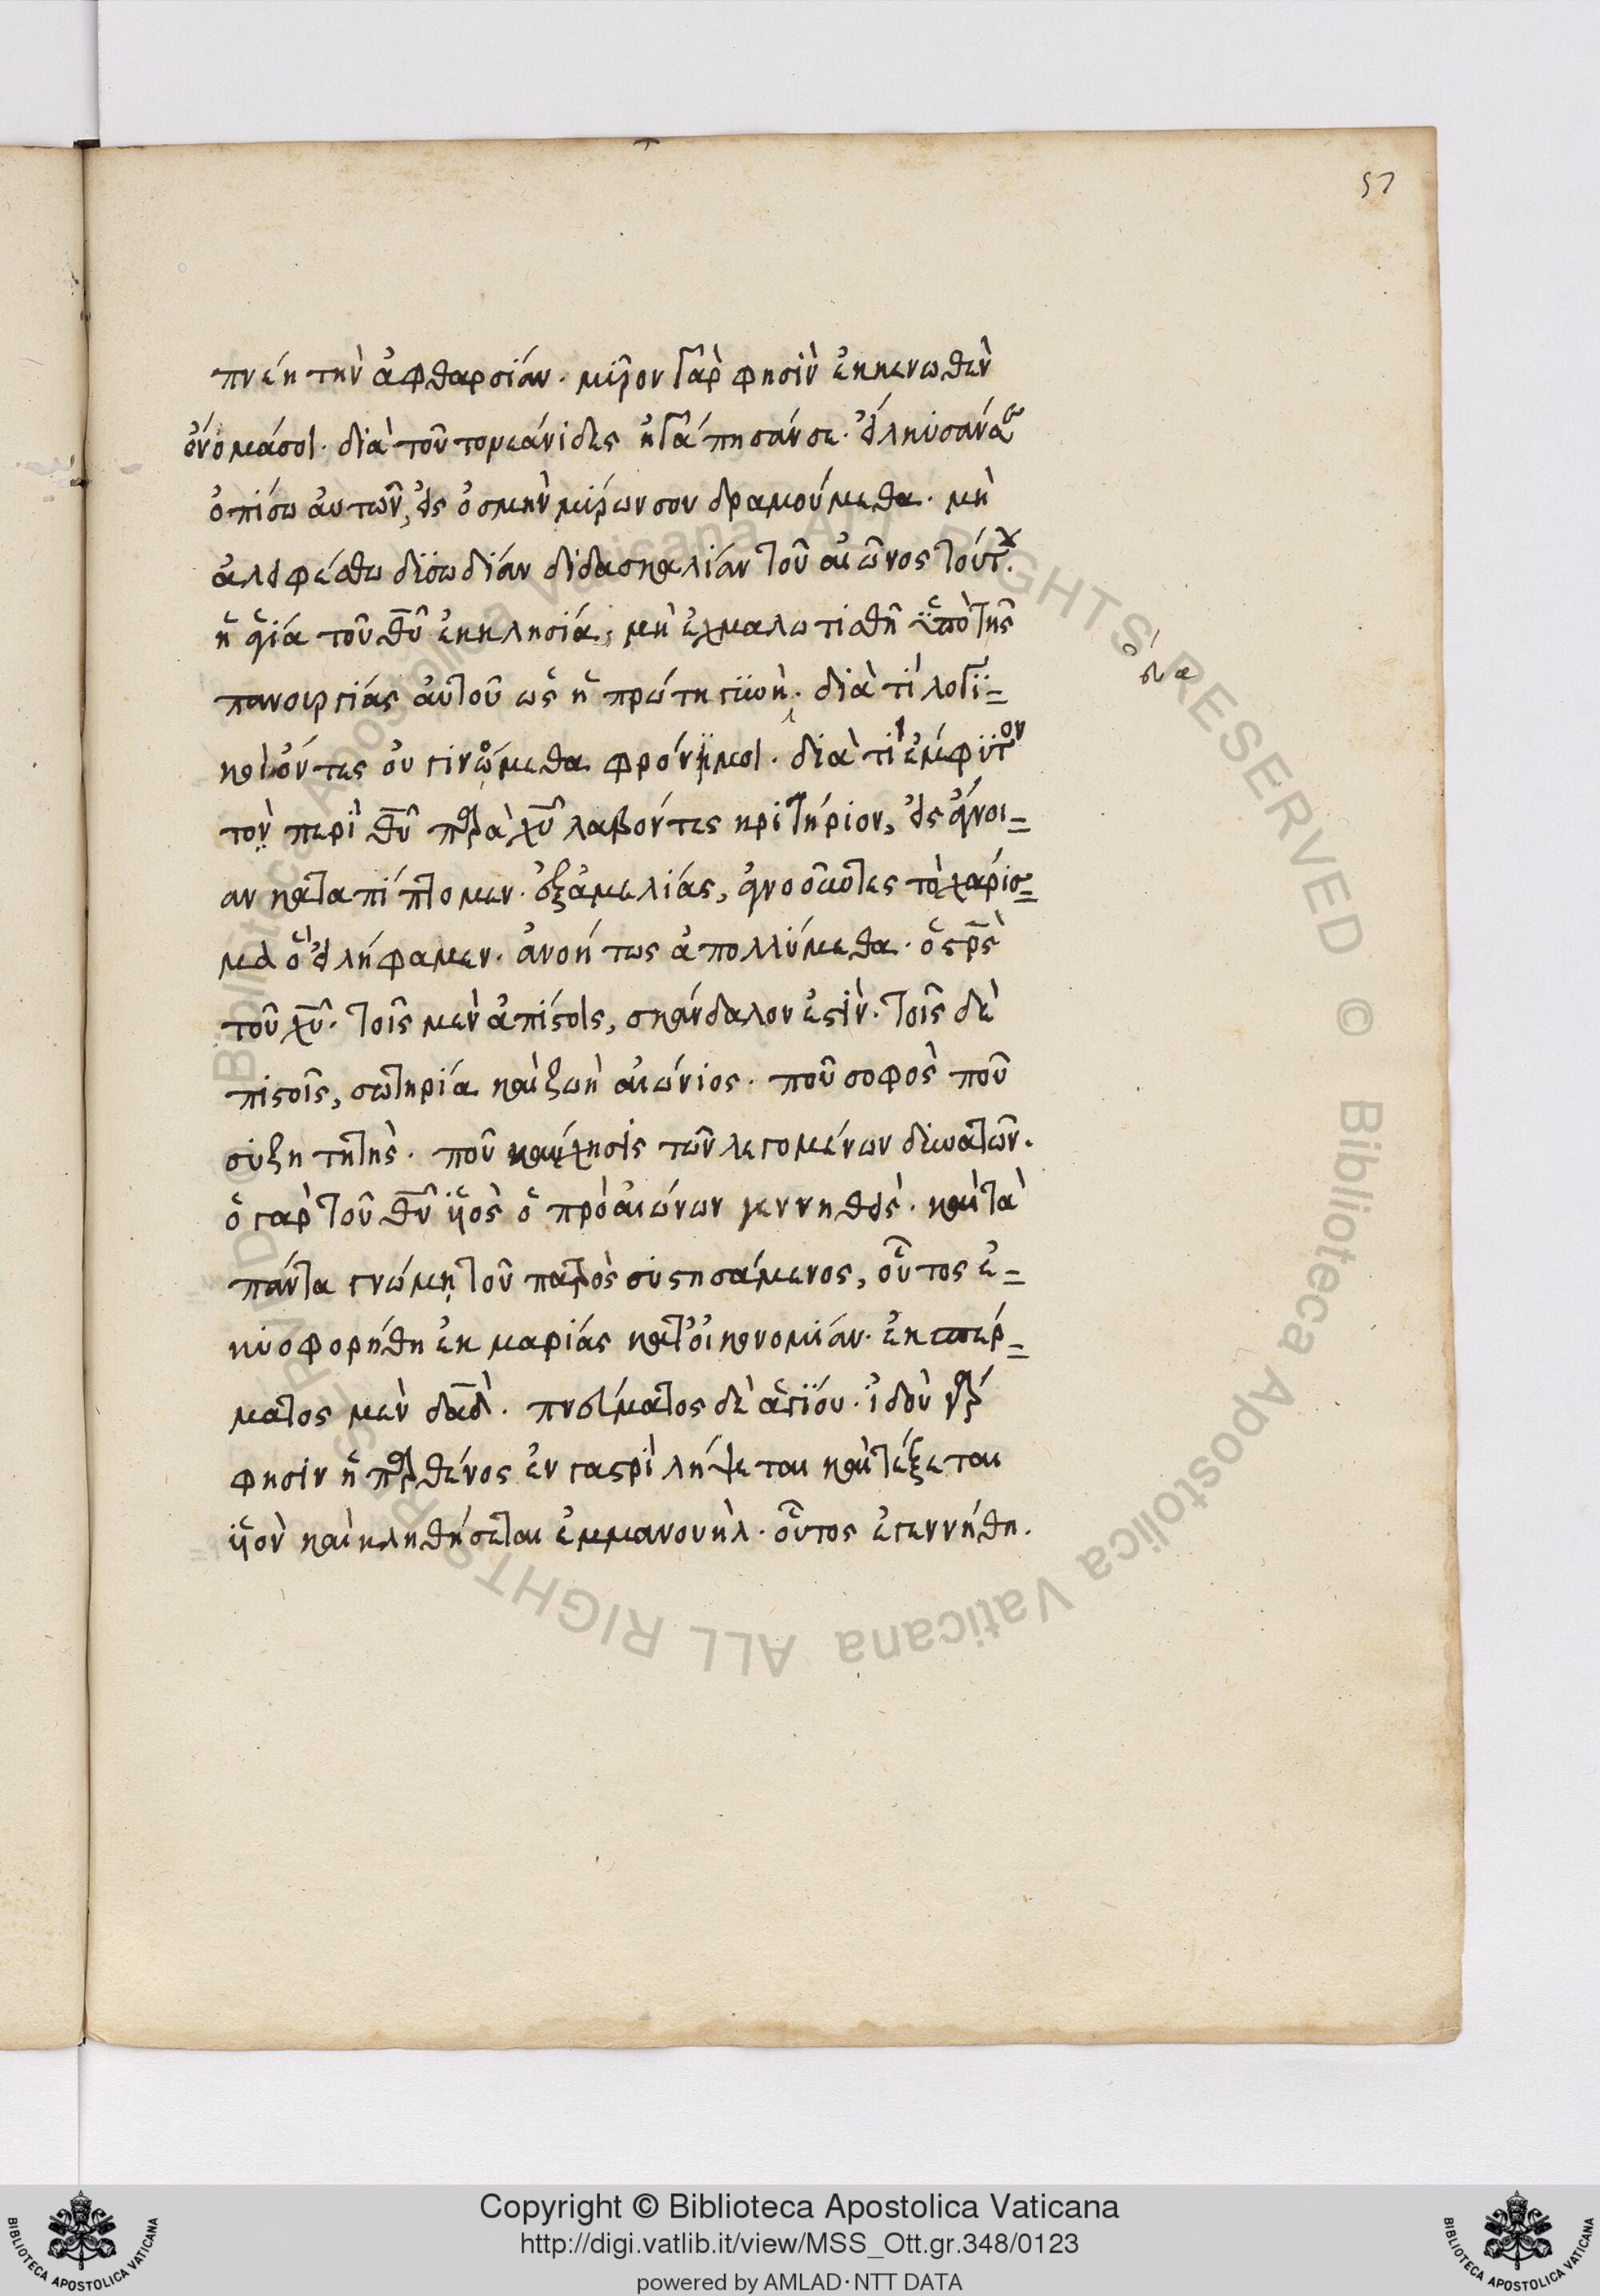 57
πνέη τὴν ἀφθαρσίαν. μύρον γὰρ φησὶν ἐκκενωθὲν
ὄνομάσοι. διὰ τοῦτο νεάνιδες ἠγάπησάν σε. εἵλκυσάν σε
ὀπίσω αὐτῶν, εἰς ὀσμὴν μύρων σου δραμούμεθα. μὴ
ἀλειφέσθω δυσωδίαν διδασκαλίαν τοῦ αἰῶνος τούτου.
ἡ ἁγία τοῦ θῦ ἐκκλησία, μὴ ἐχμαλωτισθῆ ὑπὸ τῆς
πανουργίας αὐτοῦ ὡς ἡ πρώτη γυνὴ. διὰ τί λογϊ=
κοὶ ὄντες οὐ γινώμεθα φρόνημοι. διὰ τί ἔμφυτον
τὸν περὶ θῦ παρὰ χῦ λαβόντες κριτήριον, εἰς ἄγνοι=
αν καταπίπτομεν. ἐξ ἀμελίας, ἀγνοοῦντες τὸ χάρισ=
μα ὃ εἰλήφαμεν. ἀνοήτως ἀπολλύμεθα. ὁ σρς
τοῦ χῦ. τοῖς μὲν ἀπίστοις, σκάνδαλον ἐστὶν. τοῖς δὲ
πιστοῖς, σωτηρία καὶ ζωὴ αἰώνιος. ποῦ σοφὸς ποῦ
συζητητὴς. ποῦ καύχησις τῶν λεγομένων δυνατῶν.
ὁ γὰρ τοῦ θῦ υἱὸς ὁ πρὸ αἰώνων γεννηθεὶς. καὶ τὰ
πάντα γνώμη τοῦ πατρὸς συστησάμενος, οὗτος ἐ=
κυοφορήθη ἐκ μαρίας κατ' οἰκονομίαν. ἐκ σπέρ=
ματος μὲν δαδ. πνεύματος δὲ ἁγίου. ἰδοὺ γάρ
φησιν ἡ παρθένος ἐν γαστρὶ λήψεται καὶ τέξεται
υἱὸν καὶ κληθήσεται ἐμμανουήλ. οὗτος ἐγεννήθη.
Copyright © Biblioteca Apostolica Vaticana
http://digi.vatlib.it/view/MSS_Ott.gr.348/0123
powered by AMLAD·NTT DATA